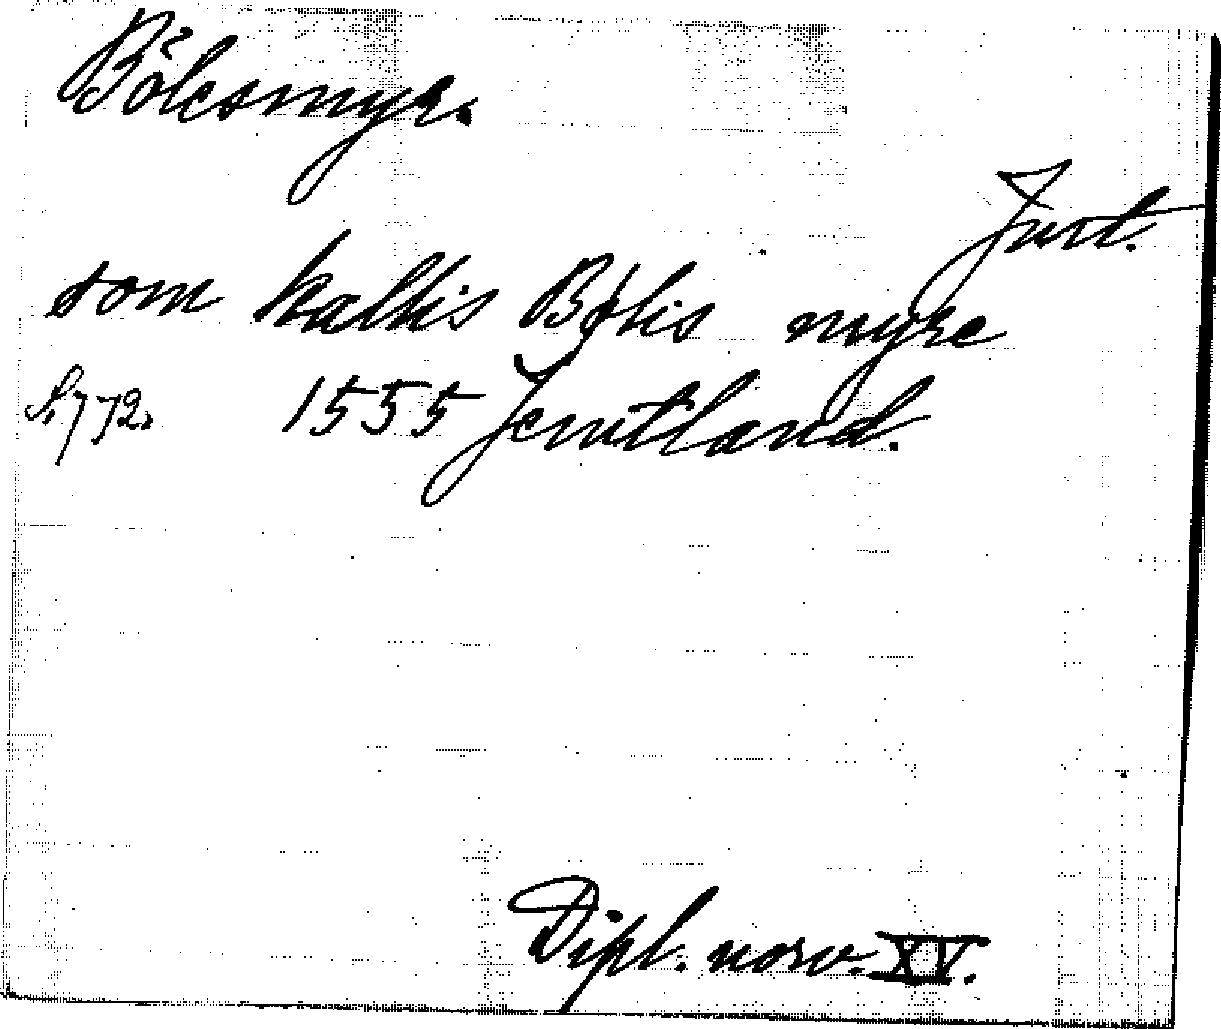 Bölesmyr.
Jmt.
som kallis Bølis myre
S. 772. 1555 Jemtland.
Dipl. norv. XV.